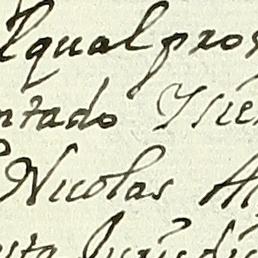 lqual pros
ntado Ysien
Nicolas Al
sta Juridi